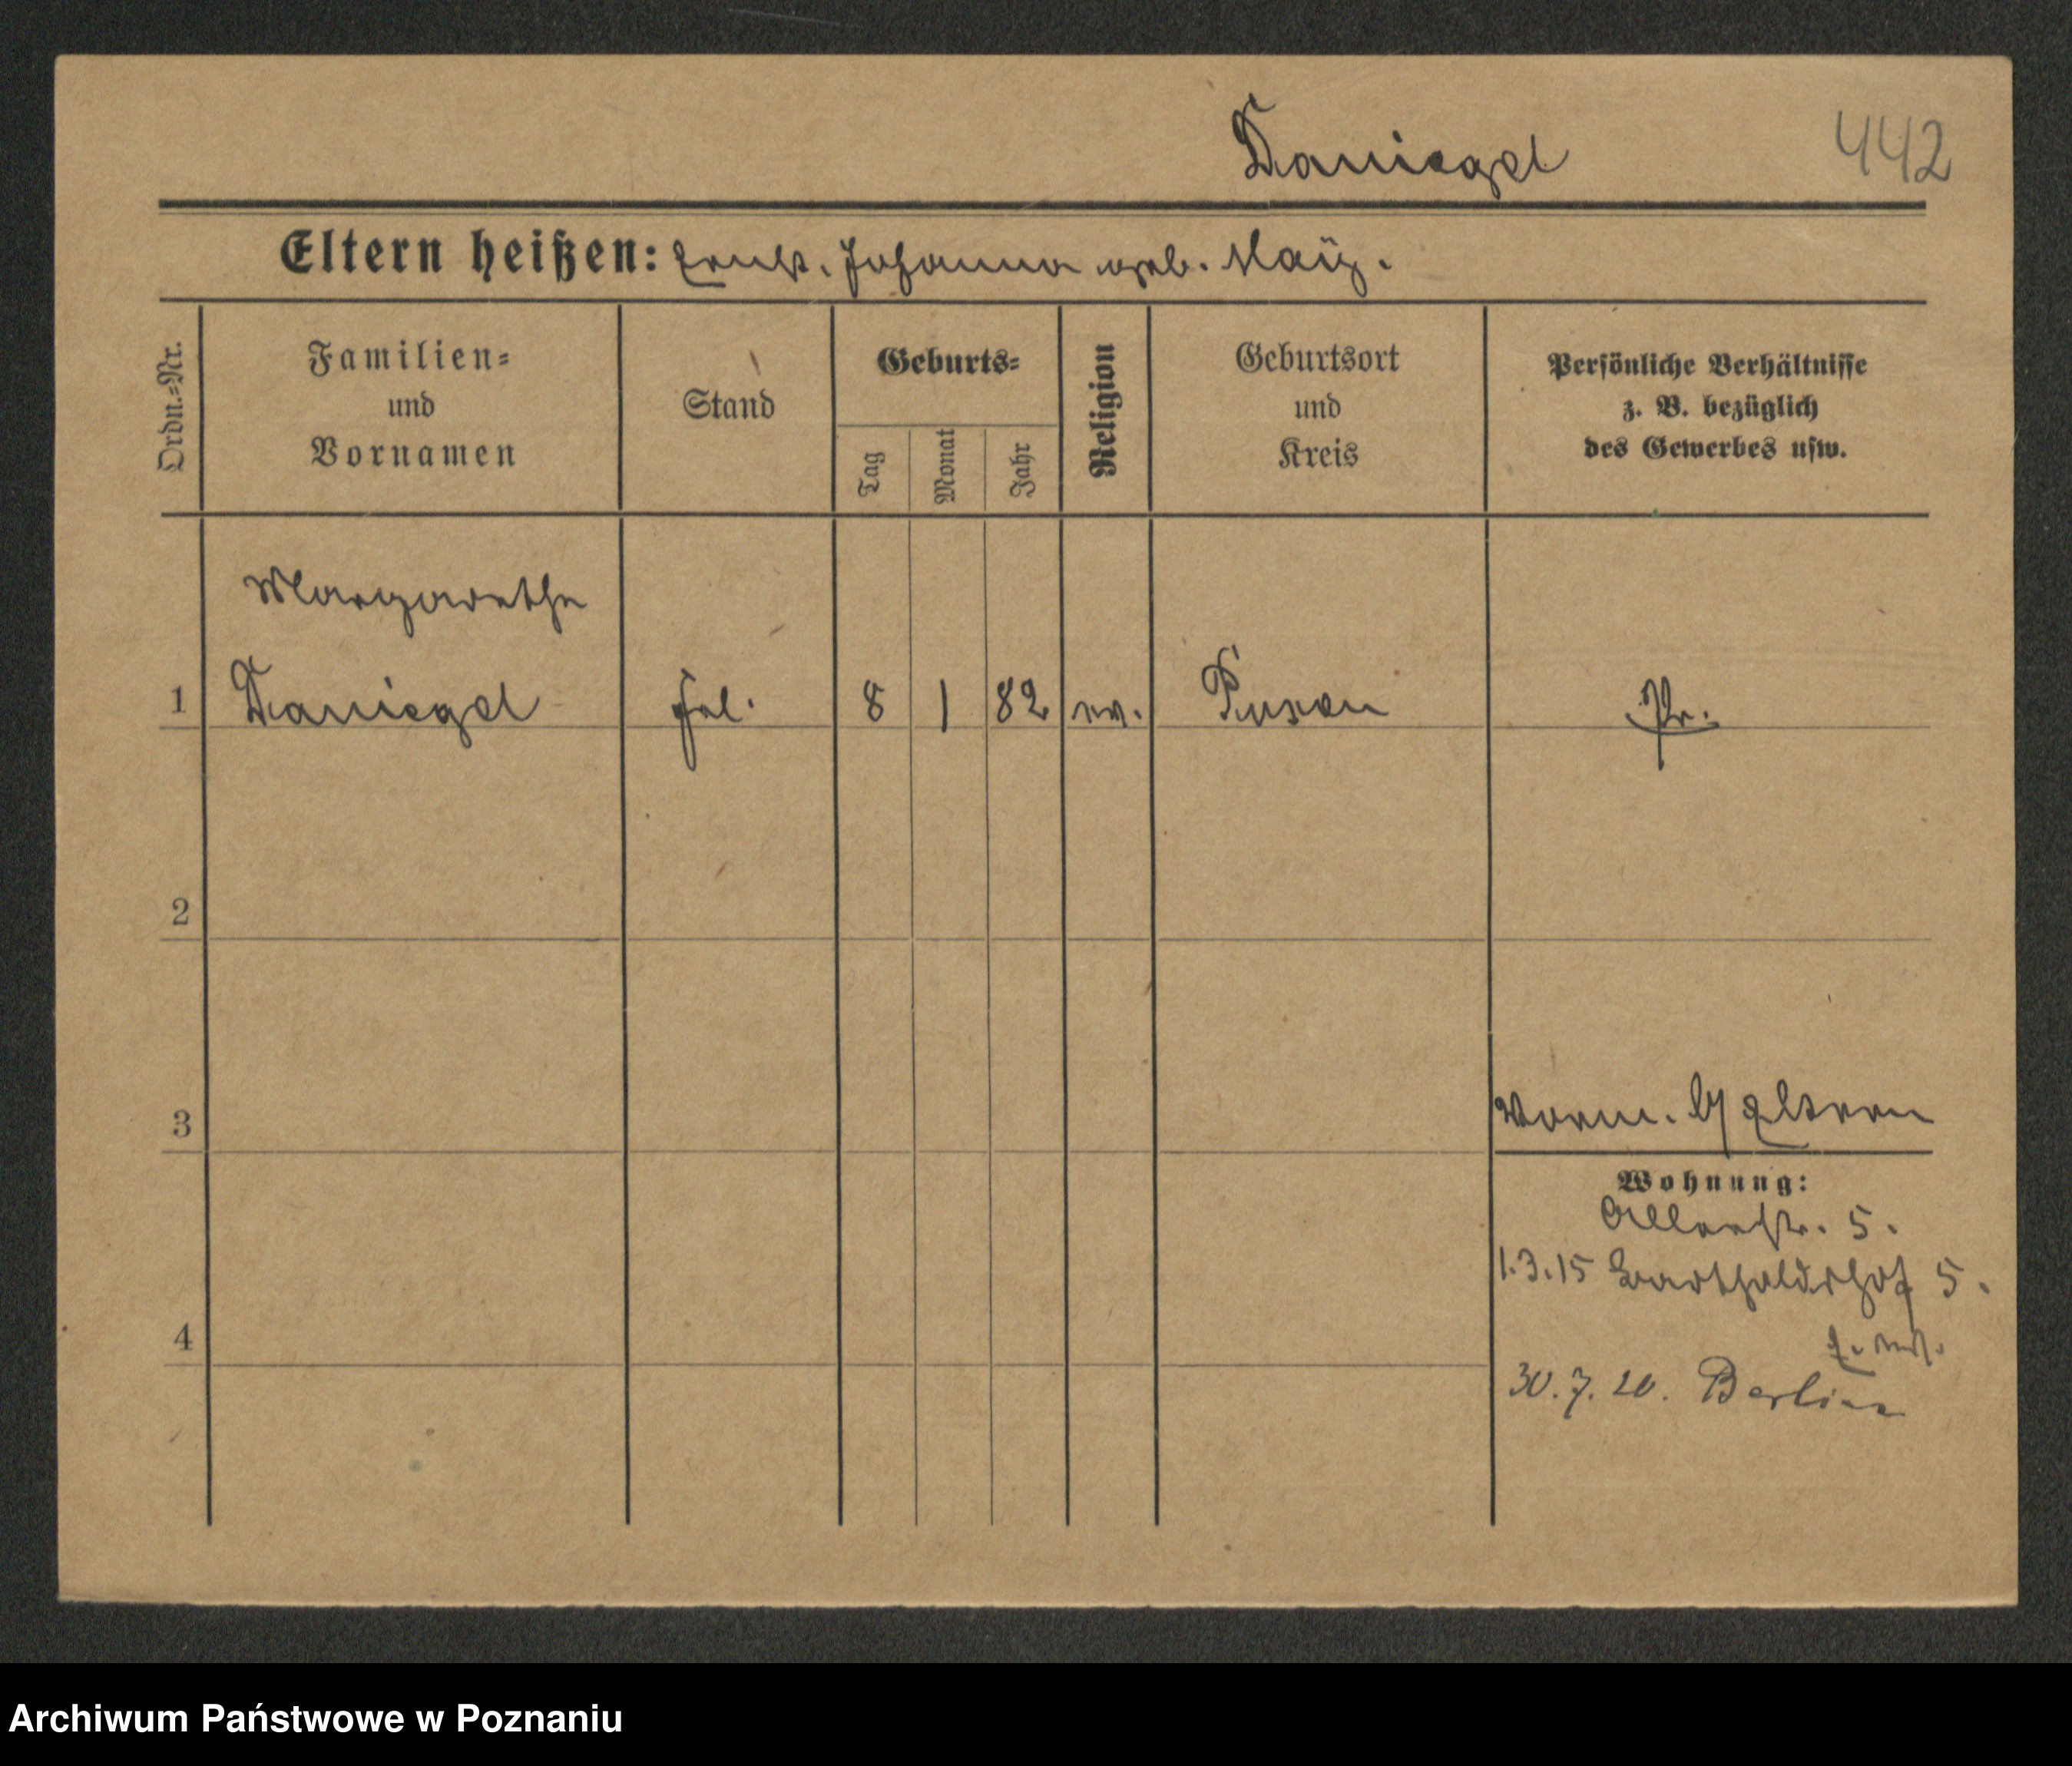 Daniegel 442
Eltern heißen: Ernst. Johanna geb. May.
Ordn.=Nr.
Familien=
und
Vornamen
Stand
Geburts=
Tag
Monat
Jahr
Religion
Geburtsort
und
Kreis
Persönliche Verhältnisse
z. B. bezüglich
des Gewerbes usw.
Margarethe
1 Daniegel Frl. 8 1 82 ev. Posen Pr.
2
3
Vorm. b/ Eltern
Wohnung:
5.
1.3.15 Bartholdshof 5.
4
30. 7. 20. Berlin
Archiwum Państwowe w Poznaniu